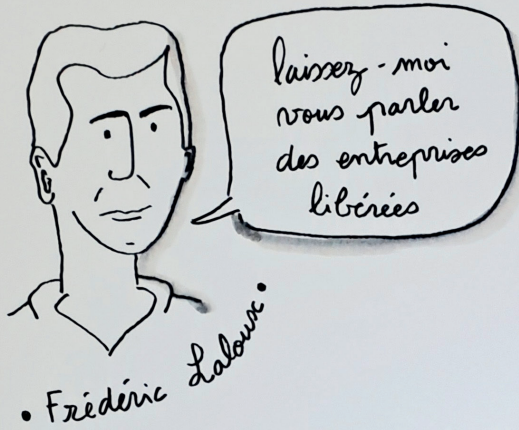 laissez-moi
vous parler
des entreprises
libérées
• Frédéric Laloux •